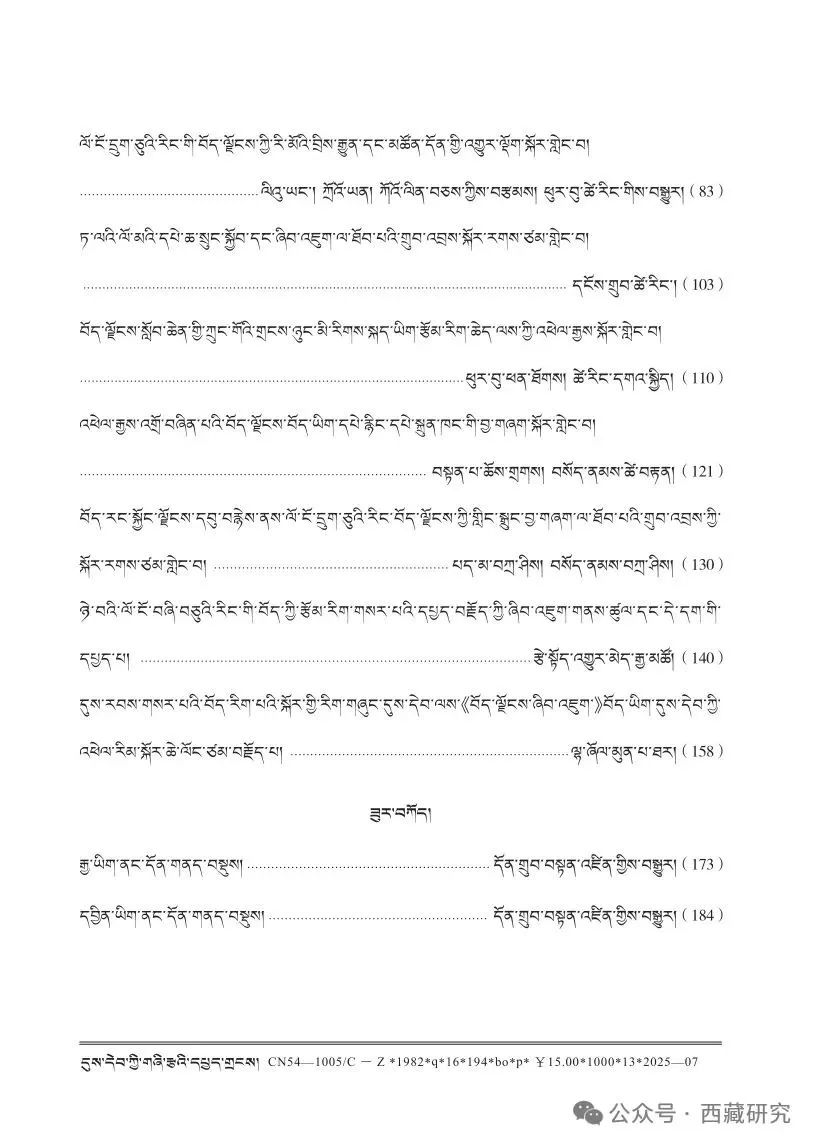 ལོ་ངོ་དྲུག་ཅུའི་རིང་གི་བོད་ལྗོངས་ཀྱི་རི་མོའི་བྲིས་རྒྱུན་དང་མཚོན་དོན་གྱི་འགྱུར་ལྡོག་སྐོར་གླེང་བ།
ལིའུ་ཡང་། ཀྲོའོ་ཡན། ཀོའོ་ལིན་བཅས་ཀྱིས་བརྩམས། ཕུར་བུ་ཚེ་རིང་གིས་བསྒྱུར། (83)
ཏ་ལའི་ལོ་མའི་དཔེ་ཆ་སྲུང་སྐྱོབ་དང་ཞིབ་འཇུག་ལ་ཐོབ་པའི་གྲུབ་འབྲས་སྐོར་རགས་ཙམ་གླེང་བ།
དངོས་གྲུབ་ཚེ་རིང་། (103)
བོད་ལྗོངས་སློབ་ཆེན་གྱི་ཀྲུང་གོའི་གྲངས་ཉུང་མི་རིགས་སྐད་ཡིག་རྩོམ་རིག་ཆེད་ལས་ཀྱི་འཕེལ་རྒྱས་སྐོར་གླེང་བ།
ཕུར་བུ་ཕན་ཐོགས། ཚེ་རིང་དགའ་སྐྱིད། (110)
འཕེལ་རྒྱས་འགྲོ་བཞིན་པའི་བོད་ལྗོངས་བོད་ཡིག་དཔེ་རྙིང་དཔེ་སྐྲུན་ཁང་གི་བྱ་གཞག་སྐོར་གླེང་བ།
བསྟན་པ་ཆོས་གྲགས། བསོད་ནམས་ཚེ་བརྟན། (121)
བོད་རང་སྐྱོང་ལྗོངས་དབུ་བརྙེས་ནས་ལོ་ངོ་དྲུག་ཅུའི་རིང་བོད་ལྗོངས་ཀྱི་གླིང་སྒྲུང་བྱ་གཞག་ལ་ཐོབ་པའི་གྲུབ་འབྲས་ཀྱི་
སྐོར་རགས་ཙམ་གླེང་བ། པད་མ་བཀྲ་ཤིས། བསོད་ནམས་བཀྲ་ཤིས། (130)
ཉེ་བའི་ལོ་ངོ་བཞི་བཅུའི་རིང་གི་བོད་ཀྱི་རྩོམ་རིག་གསར་པའི་དཔྱད་བརྗོད་ཀྱི་ཞིབ་འཇུག་གནས་ཚུལ་དང་དེ་དག་གི་
དཔྱད་པ། རྩེ་སྟོད་འགྱུར་མེད་རྒྱ་མཚོ། (140)
དུས་རབས་གསར་པའི་བོད་རིག་པའི་སྐོར་གྱི་རིག་གཞུང་དུས་དེབ་ལས་《བོད་ལྗོངས་ཞིབ་འཇུག་》བོད་ཡིག་དུས་དེབ་ཀྱི་
འཕེལ་རིམ་སྐོར་ཆེ་ལོང་ཙམ་བརྗོད་པ། ལྷ་ཞོལ་མུན་པ་ཐར། (158)
ཟུར་བཀོད།
རྒྱ་ཡིག་ནང་དོན་གནད་བསྡུས། དོན་གྲུབ་བསྟན་འཛིན་གྱིས་བསྒྱུར། (173)
དབྱིན་ཡིག་ནང་དོན་གནད་བསྡུས། དོན་གྲུབ་བསྟན་འཛིན་གྱིས་བསྒྱུར། (184)
དུས་དེབ་ཀྱི་གཞི་རྩའི་དཔྱད་གྲངས། CN54—1005/C － Z *1982*q*16*194*bo*p* ￥15.00*1000*13*2025—07
公众号 · 西藏研究